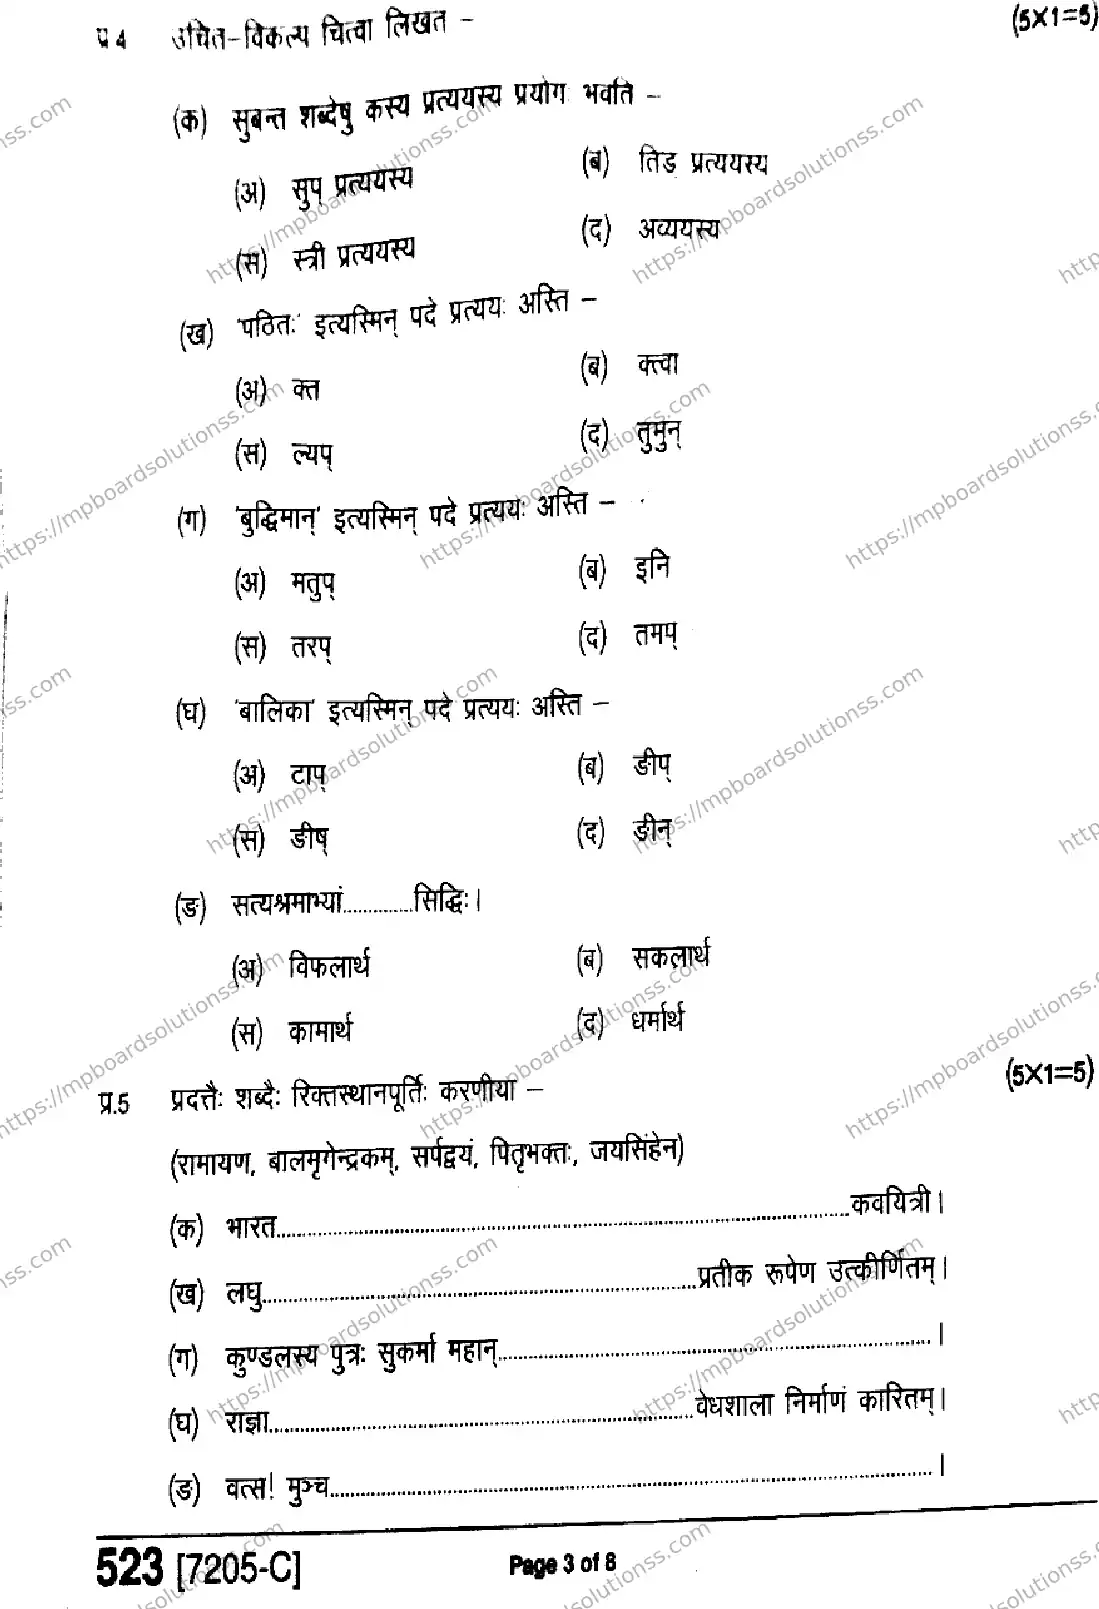 प्र 4 उचित-विकल्प चित्वा लिखत – (5X1=5)
(क) सुबन्त शब्देषु कस्य प्रत्ययस्य प्रयोगः भवति –
(अ) सुप् प्रत्ययस्य (ब) तिङ प्रत्ययस्य
(स) स्त्री प्रत्ययस्य (द) अव्ययस्य
(ख) 'पठितः' इत्यस्मिन् पदे प्रत्ययः अस्ति –
(अ) क्त (ब) क्त्वा
(स) ल्यप् (द) तुमुन्
(ग) 'बुद्धिमान्' इत्यस्मिन् पदे प्रत्ययः अस्ति –
(अ) मतुप् (ब) इनि
(स) तरप् (द) तमप्
(घ) 'बालिका' इत्यस्मिन् पदे प्रत्ययः अस्ति –
(अ) टाप् (ब) ङीप्
(स) ङीष् (द) ङीन्
(ङ) सत्यश्रमाभ्यां.............सिद्धिः।
(अ) विफलार्थ (ब) सकलार्थ
(स) कामार्थ (द) धर्मार्थ
प्र.5 प्रदत्तैः शब्दैः रिक्तस्थानपूर्तिः करणीया – (5X1=5)
(रामायण, बालमृगेन्द्रकम्, सर्पद्वयं, पितृभक्तः, जयसिंहेन)
(क) भारत..........................................कवयित्री।
(ख) लघु..........................................प्रतीक रूपेण उत्कीर्णितम्।
(ग) कुण्डलस्य पुत्रः सुकर्मा महान्..........................................।
(घ) राज्ञा..........................................वेधशाला निर्माणं कारितम्।
(ङ) वत्स! मुञ्च..........................................।
523 [7205-C] Page 3 of 8
https://mpboardsolutionss.com